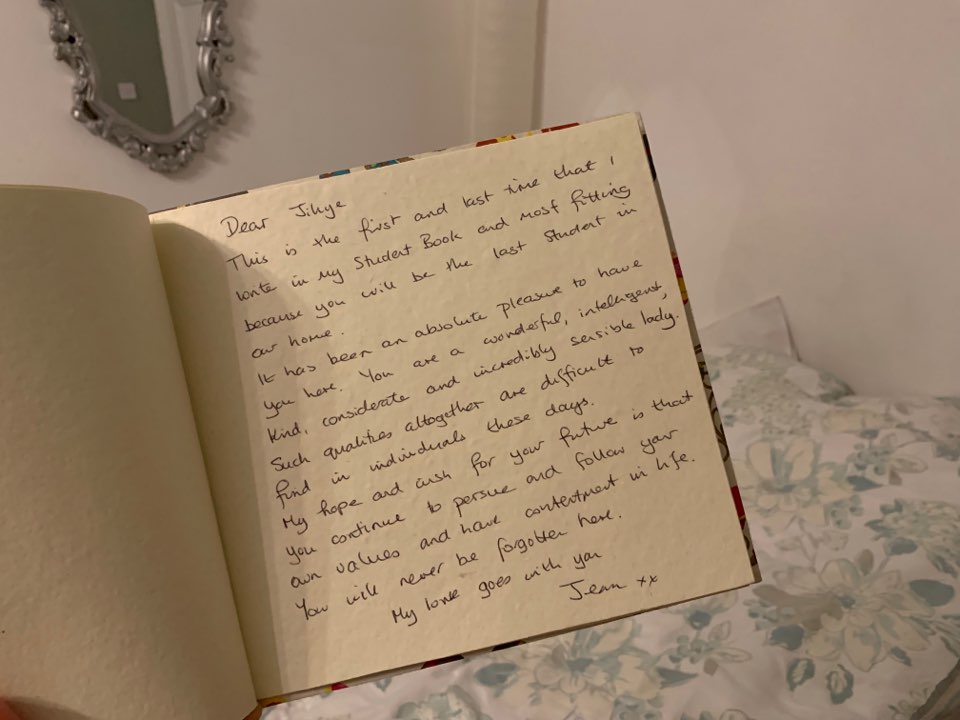 Dear Jihye
This is the first and last time that I
write in my Student Book and most fitting
because you will be the last student in
our home.
It has been an absolute pleasure to have
you here. You are a wonderful, intelligent,
kind, considerate and incredibly sensible lady.
Such qualities altogether are difficult to
find in individuals these days.
My hope and wish for your future is that
you continue to persue and follow your
own values and have contentment in life.
You will never be forgotten here.
My love goes with you
Jean xx